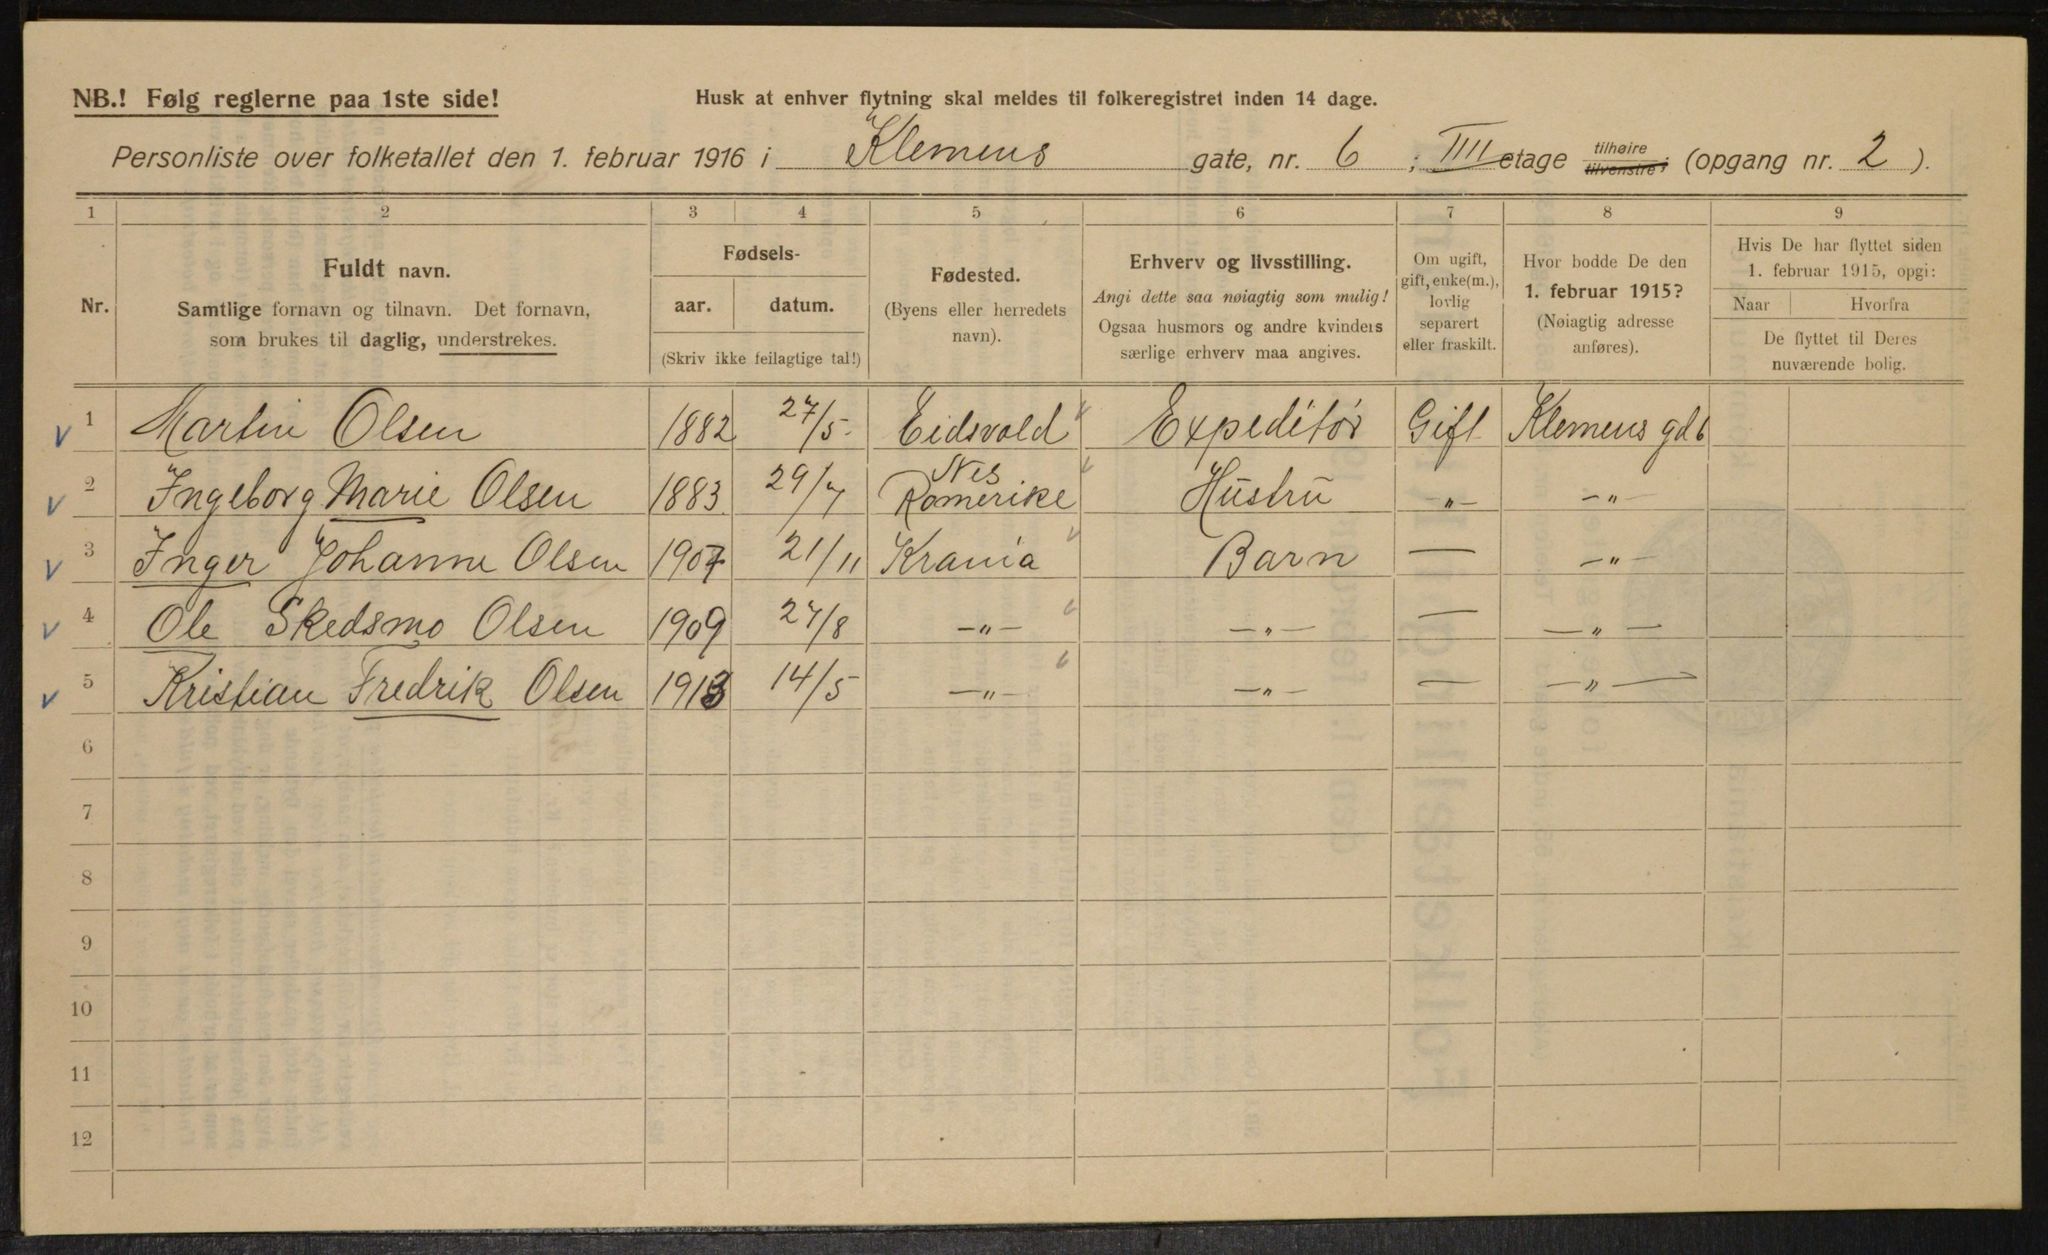 NB.! Følg reglerne paa 1ste side!
Husk at enhver flytning skal meldes til folkeregistret inden 14 dage.
Personliste over folketallet den 1. februar 1916 i Klemens gate, nr. 6 ; IIII etage tilhøire tilvenstre; (opgang nr. 2 ).
1 2 3 4 5 6 7 8 9
Nr.
Fuldt navn.
Samtlige fornavn og tilnavn. Det fornavn,
som brukes til daglig, understrekes.
Fødsels-
aar. datum.
(Skriv ikke feilagtige tal!)
Fødested.
(Byens eller herredets
navn).
Erhverv og livsstilling.
Angi dette saa nøiagtig som mulig!
Ogsaa husmors og andre kvinders
særlige erhverv maa angives.
Om ugift,
gift, enke(m.),
lovlig
separert
eller fraskilt.
Hvor bodde De den
1. februar 1915?
(Nøiagtig adresse
anføres).
Hvis De har flyttet siden
1. februar 1915, opgi:
Naar Hvorfra
De flyttet til Deres
nuværende bolig.
v 1 Martin Olsen 1882 27/5 Eidsvold Expeditør Gift Klemens gd 6
v 2 Ingeborg Marie Olsen 1883 29/7 Nes Romerike Hustru -"- -"-
v 3 Inger Johanne Olsen 1907 21/11 Krania Barn — -"-
v 4 Ole Skedsmo Olsen 1909 27/8 -"- -"- — -"-
v 5 Kristian Fredrik Olsen 1913 14/5 -"- -"- — -"-
6
7
8
9
10
11
12